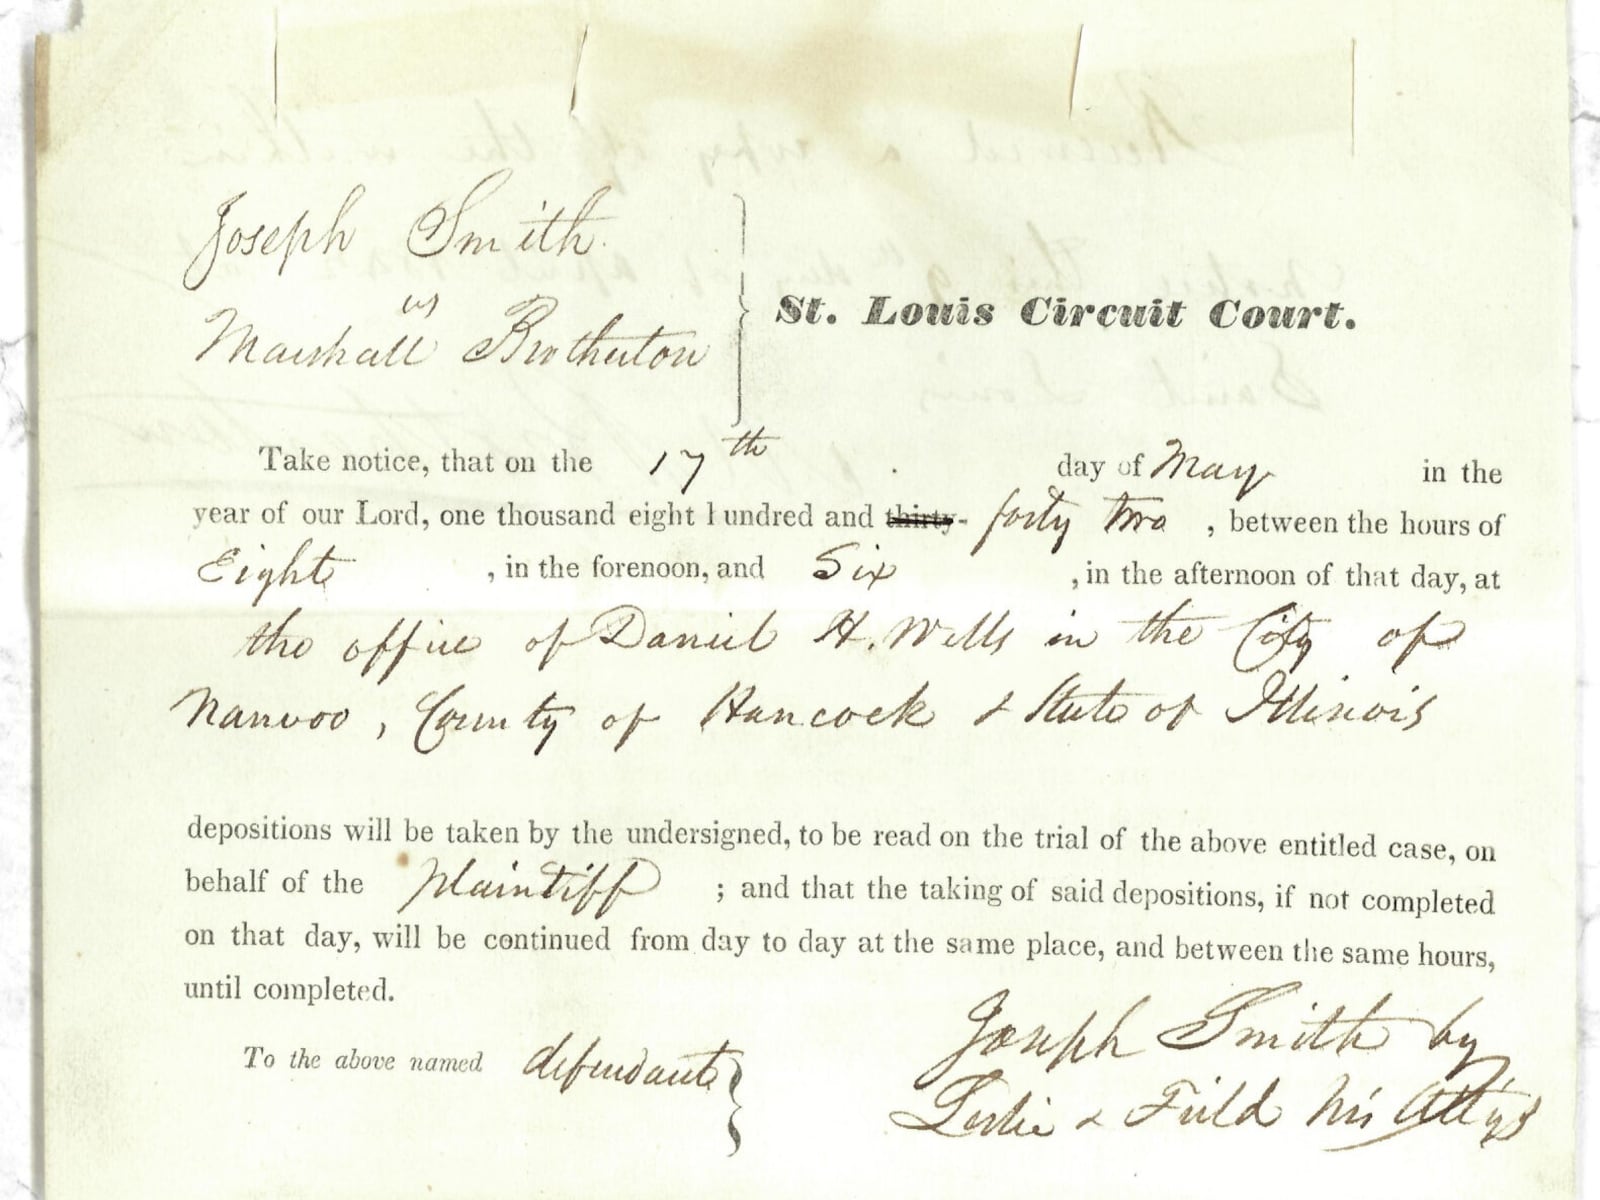 Joseph Smith
vs
Marshall Brotherton
St. Louis Circuit Court.
Take notice, that on the 17th day of May in the
year of our Lord, one thousand eight hundred and thirty- forty two, between the hours of
Eight, in the forenoon, and Six, in the afternoon of that day, at
the office of Daniel H. Wells in the City of
Nauvoo, County of Hancock & State of Illinois
depositions will be taken by the undersigned, to be read on the trial of the above entitled case, on
behalf of the Plaintiff; and that the taking of said depositions, if not completed
on that day, will be continued from day to day at the same place, and between the same hours,
until completed.
To the above named defendant
Joseph Smith by
Leslie & Field his Attys